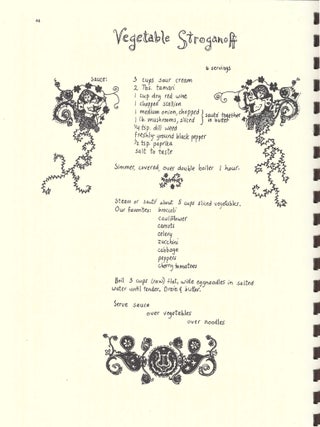 Vegetable Stroganoff
6 servings
sauce:
3 cups sour cream
2 Tbs. tamari
1 cup dry red wine
1 chopped scallion
1 medium onion, chopped
1 lb. mushrooms, sliced
sauté together
in butter
¼ tsp. dill weed
freshly ground black pepper
½ tsp. paprika
salt to taste
Simmer, covered, over double boiler 1 hour.
Steam or sauté about 5 cups sliced vegetables.
Our favorites: broccoli
cauliflower
carrots
celery
zucchini
cabbage
peppers
cherry tomatoes
Boil 3 cups (raw) flat, wide eggnoodles in salted
water until tender. Drain & butter.
Serve sauce
over vegetables
over noodles